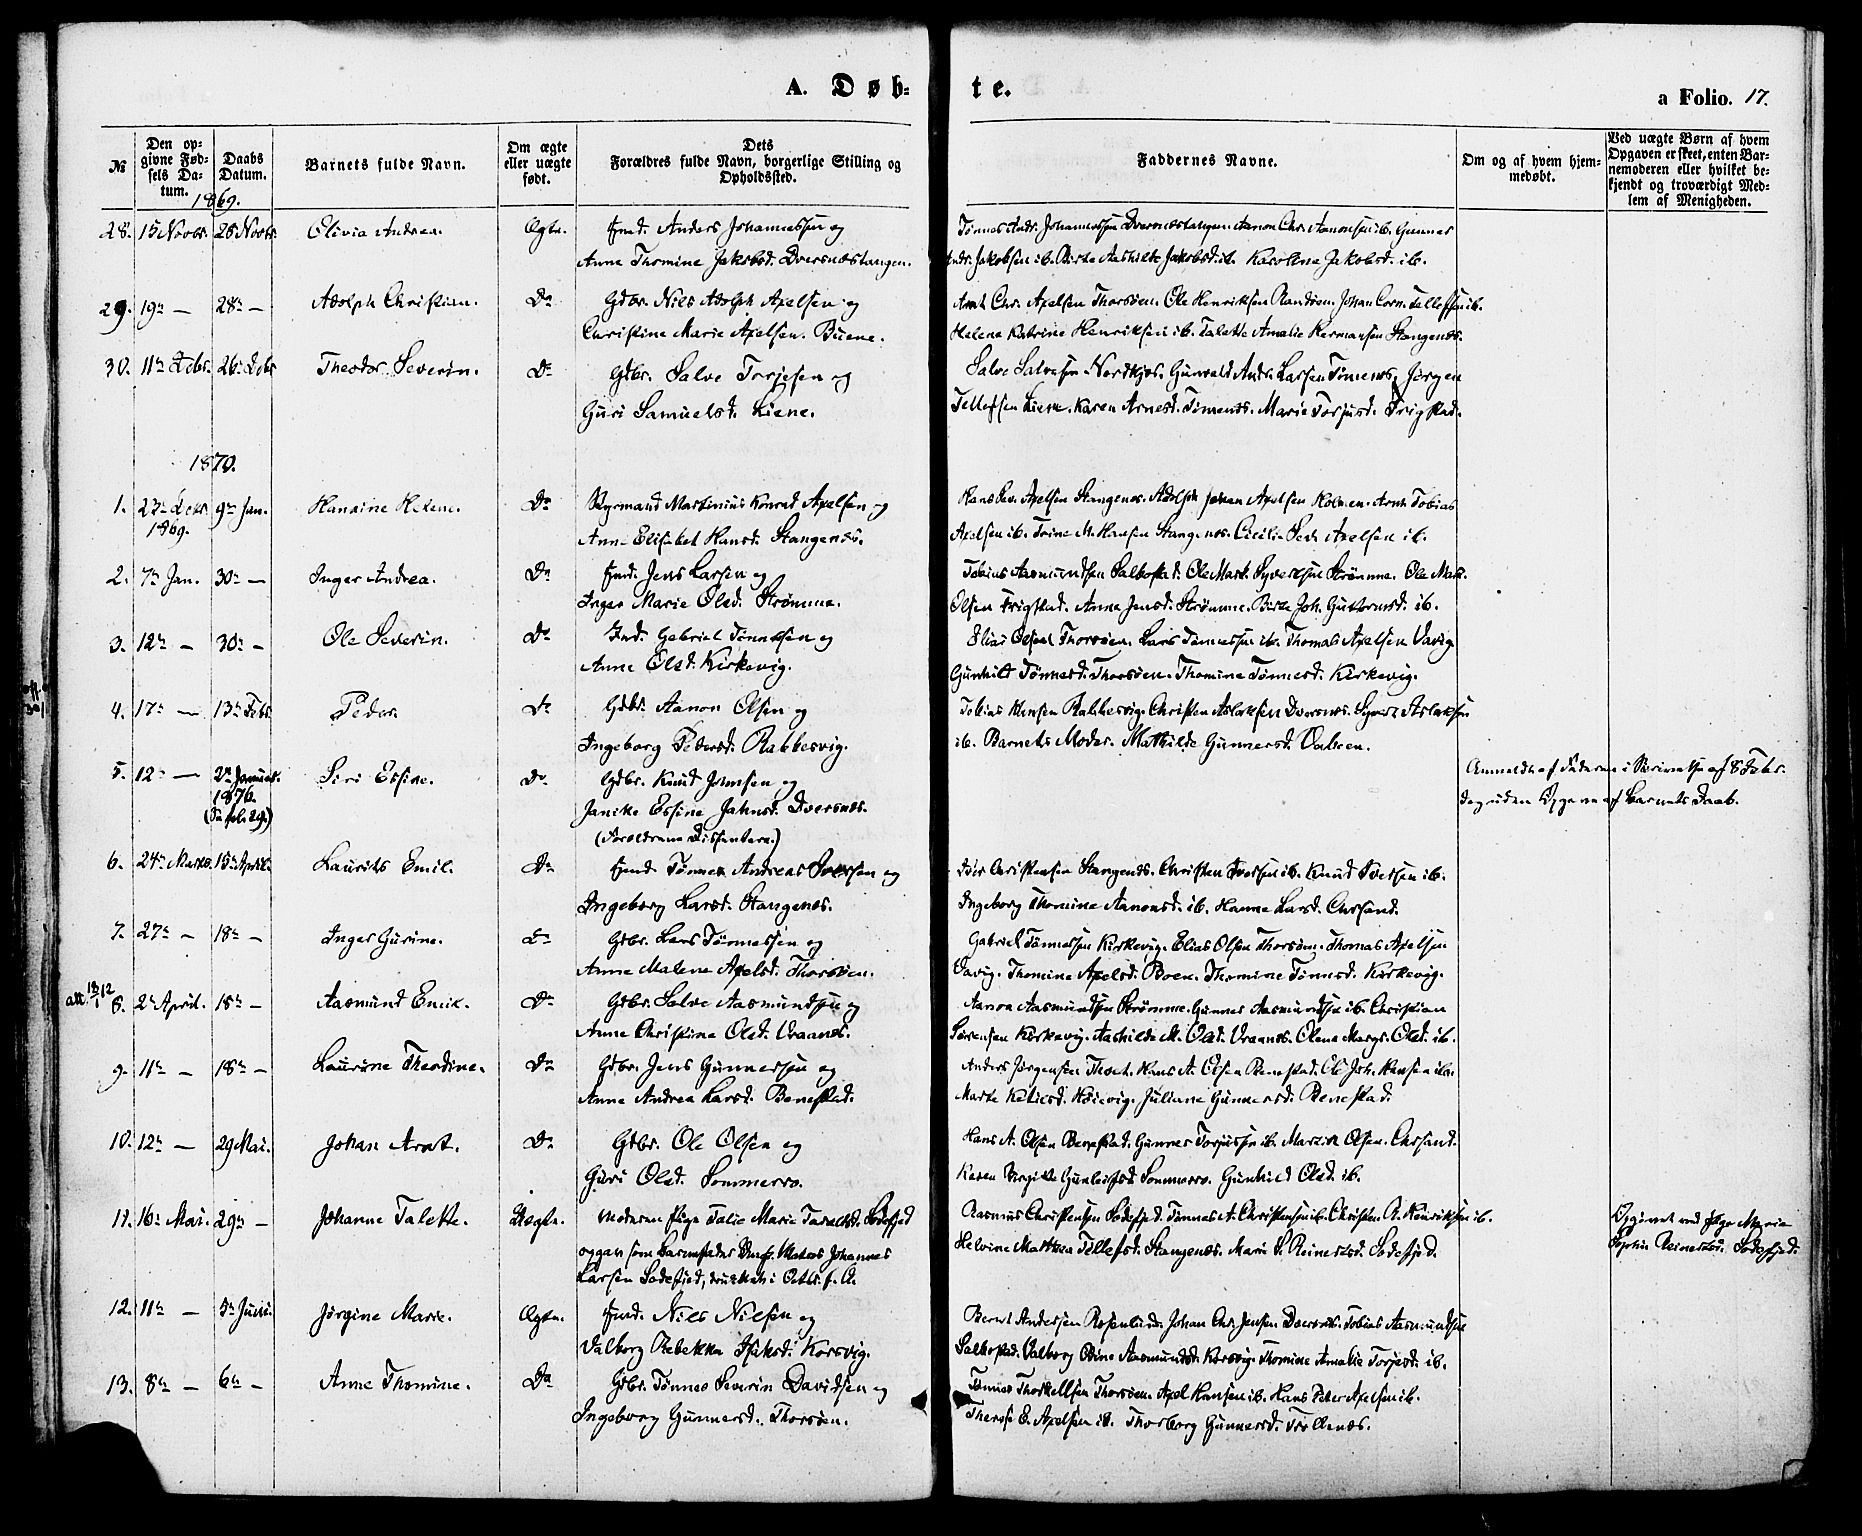 A. Døb-
te.
a Folio. 17.
№
Den op-
givne Fød-
sels Da-
tum.
Daabs
Datum.
Barnets fulde Navn.
Om ægte
eller uægte
født.
Dets
Forældres fulde Navn, borgerlige Stilling og
Opholdssted.
Faddernes Navne.
Om og af hvem hjem-
medøbt.
Ved uægte Børn af hvem
Opgaven er skeet, enten Bar-
nemoderen eller hvilket be-
kjendt og troværdigt Med-
lem af Menigheden.
1869.
28. 15 Novbr. 28 Novbr. Olivia Andrea. Ægte. Anders Johannessen og
Anna Thomine Jakobsd. Dversnæstangen.
Johannessen Dversnæstangen. Aanon Chr. Aanonsen ib. Gunner
Andr. Jakobsen ib. Birte Aashilde Jakobsd. ib. Karoline Jakobsd. ib.
29. 19de — 28de — Adolph Christian. Do Gdbr. Nils Adolph Axelsen og
Christine Marie Axelsen. Buene.
Arnt Chr. Axelsen Thorsøen. Ole Henriksen Randøen. Johan Corn. Tellefsen ib.
Helene Katrine Henriksen ib. Talette Amalie Hermansen Stangenes.
30. 11te Debr. 26de Debr. Theodor Severin. Do Gdbr. Salve Torjesen og
Guri Samuelsd. Liene.
Salve Salvesen Nordkjos. Gunvald Andr. Larsen Timenes. Jørgen
Tellefsen Liene. Karen Arnesd. Timenes. Marie Torjusd. Frigstad.
1870.
1. 23de Debr. 9de Jan. Hansine Helene. Do Styrmand Martinius Konrad Axelsen og
1869.
Ann Elisabet Hansd. Stangenes.
Hans Sev. Axelsen Stangenes. Adolph Johan Axelsen Holmen. Arnt Tobias
Axelsen ib. Trine M. Hansen Stangenes. Cecilie Axelsen ib.
2. 7de Jan. 30te — Inger Andrea. Do Jens Larsen og
Inger Marie Olsd. Strømme.
Tobias Aasmundsen Salbostad. Ole Mart. Syvertsen Strømme. Ole Mart.
Olsen Frigstad. Anna Jensd. Strømme. Birte Joh. Guttormsd. ib.
3. 12te — 30te — Ole Severin. Do Ind. Gabriel Tønnesen og
Anne Olsd. Kirkevig.
Elias Olsen Thorsøen. Lars Tønnessen ib. Thomas Axelsen Vavig.
Gunhild Tønnesd. Thorsøen. Thomine Tønnesd. Kirkevig.
4. 17de — 13de Febr. Peder. Do Gdbr. Aanon Olsen og
Ingeborg Pedersd. Rabbesvig.
Tobias Hansen Rabbesvig. Christen Aslaksen Dversnes. Syvert Aslaksen
ib. Barnets Moder. Mathilde Gunnersd.
5. 12te — 2de Januar. Siri Essine. Do Gdbr. Knud Jahnsen og
1876.
(Se fol. 29.)
Janike Essine Jahnsd. Dversnes.
(Forældrene Dissentere.)
Anmeldt af Faderen i Skrivelse af 8 Febr.
dog uden Opgave af Barnets Daab.
6. 24de Marts. 15de April. Laurits Emil. Do Tønnes Andreas Iversen og
Ingeborg Larsd. Stangenes.
Iver Christensen Stangenes. Christen Iversen ib. Knud Iversen ib.
Ingeborg Thomine Aanonsd. ib. Hanne Larsd. Chrsand.
7. 27de — 18de — Inger Gurine. Do Gdbr. Lars Tønnessen og
Anne Malene Axelsd. Thorsøen.
Gabriel Tønnessen Kirkevig. Elias Olsen Thorsøen. Thomas Axelsen
Vavig. Thomine Axelsd. Boen. Thomine Tønnesd. Kirkevig.
att. 13/1 12
8. 2de April. 18de — Aasmund Emil. Do Gdbr. Salve Aasmundsen og
Anne Christine Olsd. Vraanes.
Aanon Aasmundsen Strømme. Gunner Aasmundsen ib. Christian
Sørensen Kirkevig. Aashilde M. Olsd. Vraanes. Olene Margr. Olsd. ib.
9. 11te — 18de — Laurine Theodine. Do Gdbr. Jens Gunnersen og
Anne Andrea Larsd. Benestad.
Anders Jørgensen Hans A. Olsen Benestad. Ole Joh. Hansen ib.
Marte Høievig. Juliane Gunnersd. Benestad.
10. 12te — 29 Mai. Johan Arnt. Do Gdbr. Ole Olsen og
Guri Olsd. Sommerro.
Hans A. Olsen Benestad. Gunner Torjussen ib. Martin Olsen. Chrsand.
Karen Birgitte Gunleifsd. Sommerro. Gunhild Olsd. ib.
11. 16de Mai. 29de — Johanne Talette. Uægte. Moderen Pige Talie Marie Taraldsd. Sodefjed
opgav som Barnefader Matros Johannes
Larsen Sodefjed,
Rasmus Christensen Sodefjed. Tønnes A. Christensen ib. Christen A. Henriksen ib.
Helvine Mathea Tellefsd. Stangenæs. Marie S. Reinertsd. Sodefjed.
Opgivet ved Pige Marie
Sophie Reinertsd. Sodefjed.
12. 11te — 5te Juni. Jørgine Marie. Ægte. Nils Nilsen og
Valborg Rebekka Isaksd. Korsvig.
Bernt Andersen Rosenlund. Johan Chr. Jensen Dversnes. Tobias Aasmundsen
Salbostad. Valborg Oline Aasmundsd. Korsvig. Thomine Amalie Torjesd. ib.
13. 8de — 6te — Anne Thomine. Do Gdbr. Tønnes Severin Davidsen og
Ingeborg Gunnersd. Thorsøen.
Tønnes Thorkellsen Thorsøen. Axel Hansen ib. Hans Peter Axelsen ib.
Therese E. Axelsen ib. Thorborg Gunnersd. Trollenæs.